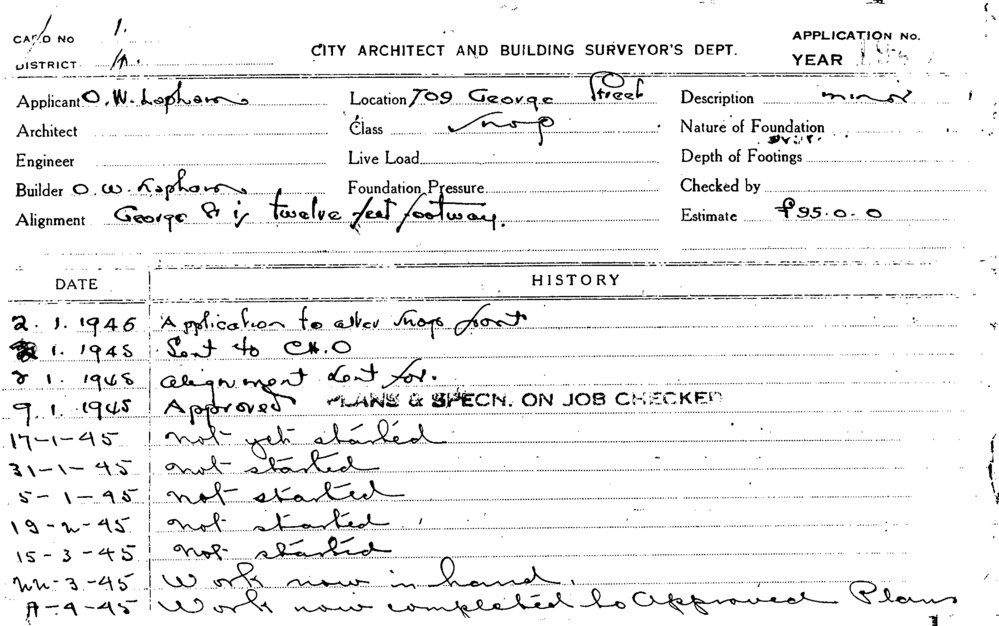 CARD No 1.
CITY ARCHITECT AND BUILDING SURVEYOR'S DEPT.
APPLICATION No.
DISTRICT
YEAR
Applicant O. W. Lapham Location 709 George Street Description minor
Architect Class Shop Nature of Foundation
Engineer Live Load Depth of Footings
Builder O. W. Lapham Foundation Pressure Checked by
Alignment George St is twelve feet footway. Estimate £95.0.0
DATE HISTORY
2. 1. 1945 Application to alter shop front
1. 1945 Sent to C.H.O
2 1. 1945 alignment sent for.
9. 1. 1945 Approved PLANS & SPECN. ON JOB CHECKED
17-1-45 Not yet started
31-1-45 Not started
5-1-45 Not started
19-2-45 Not started
15-3-45 Not started
22-3-45 Work now in hand.
-4-45 Work now completed to Approved Plans